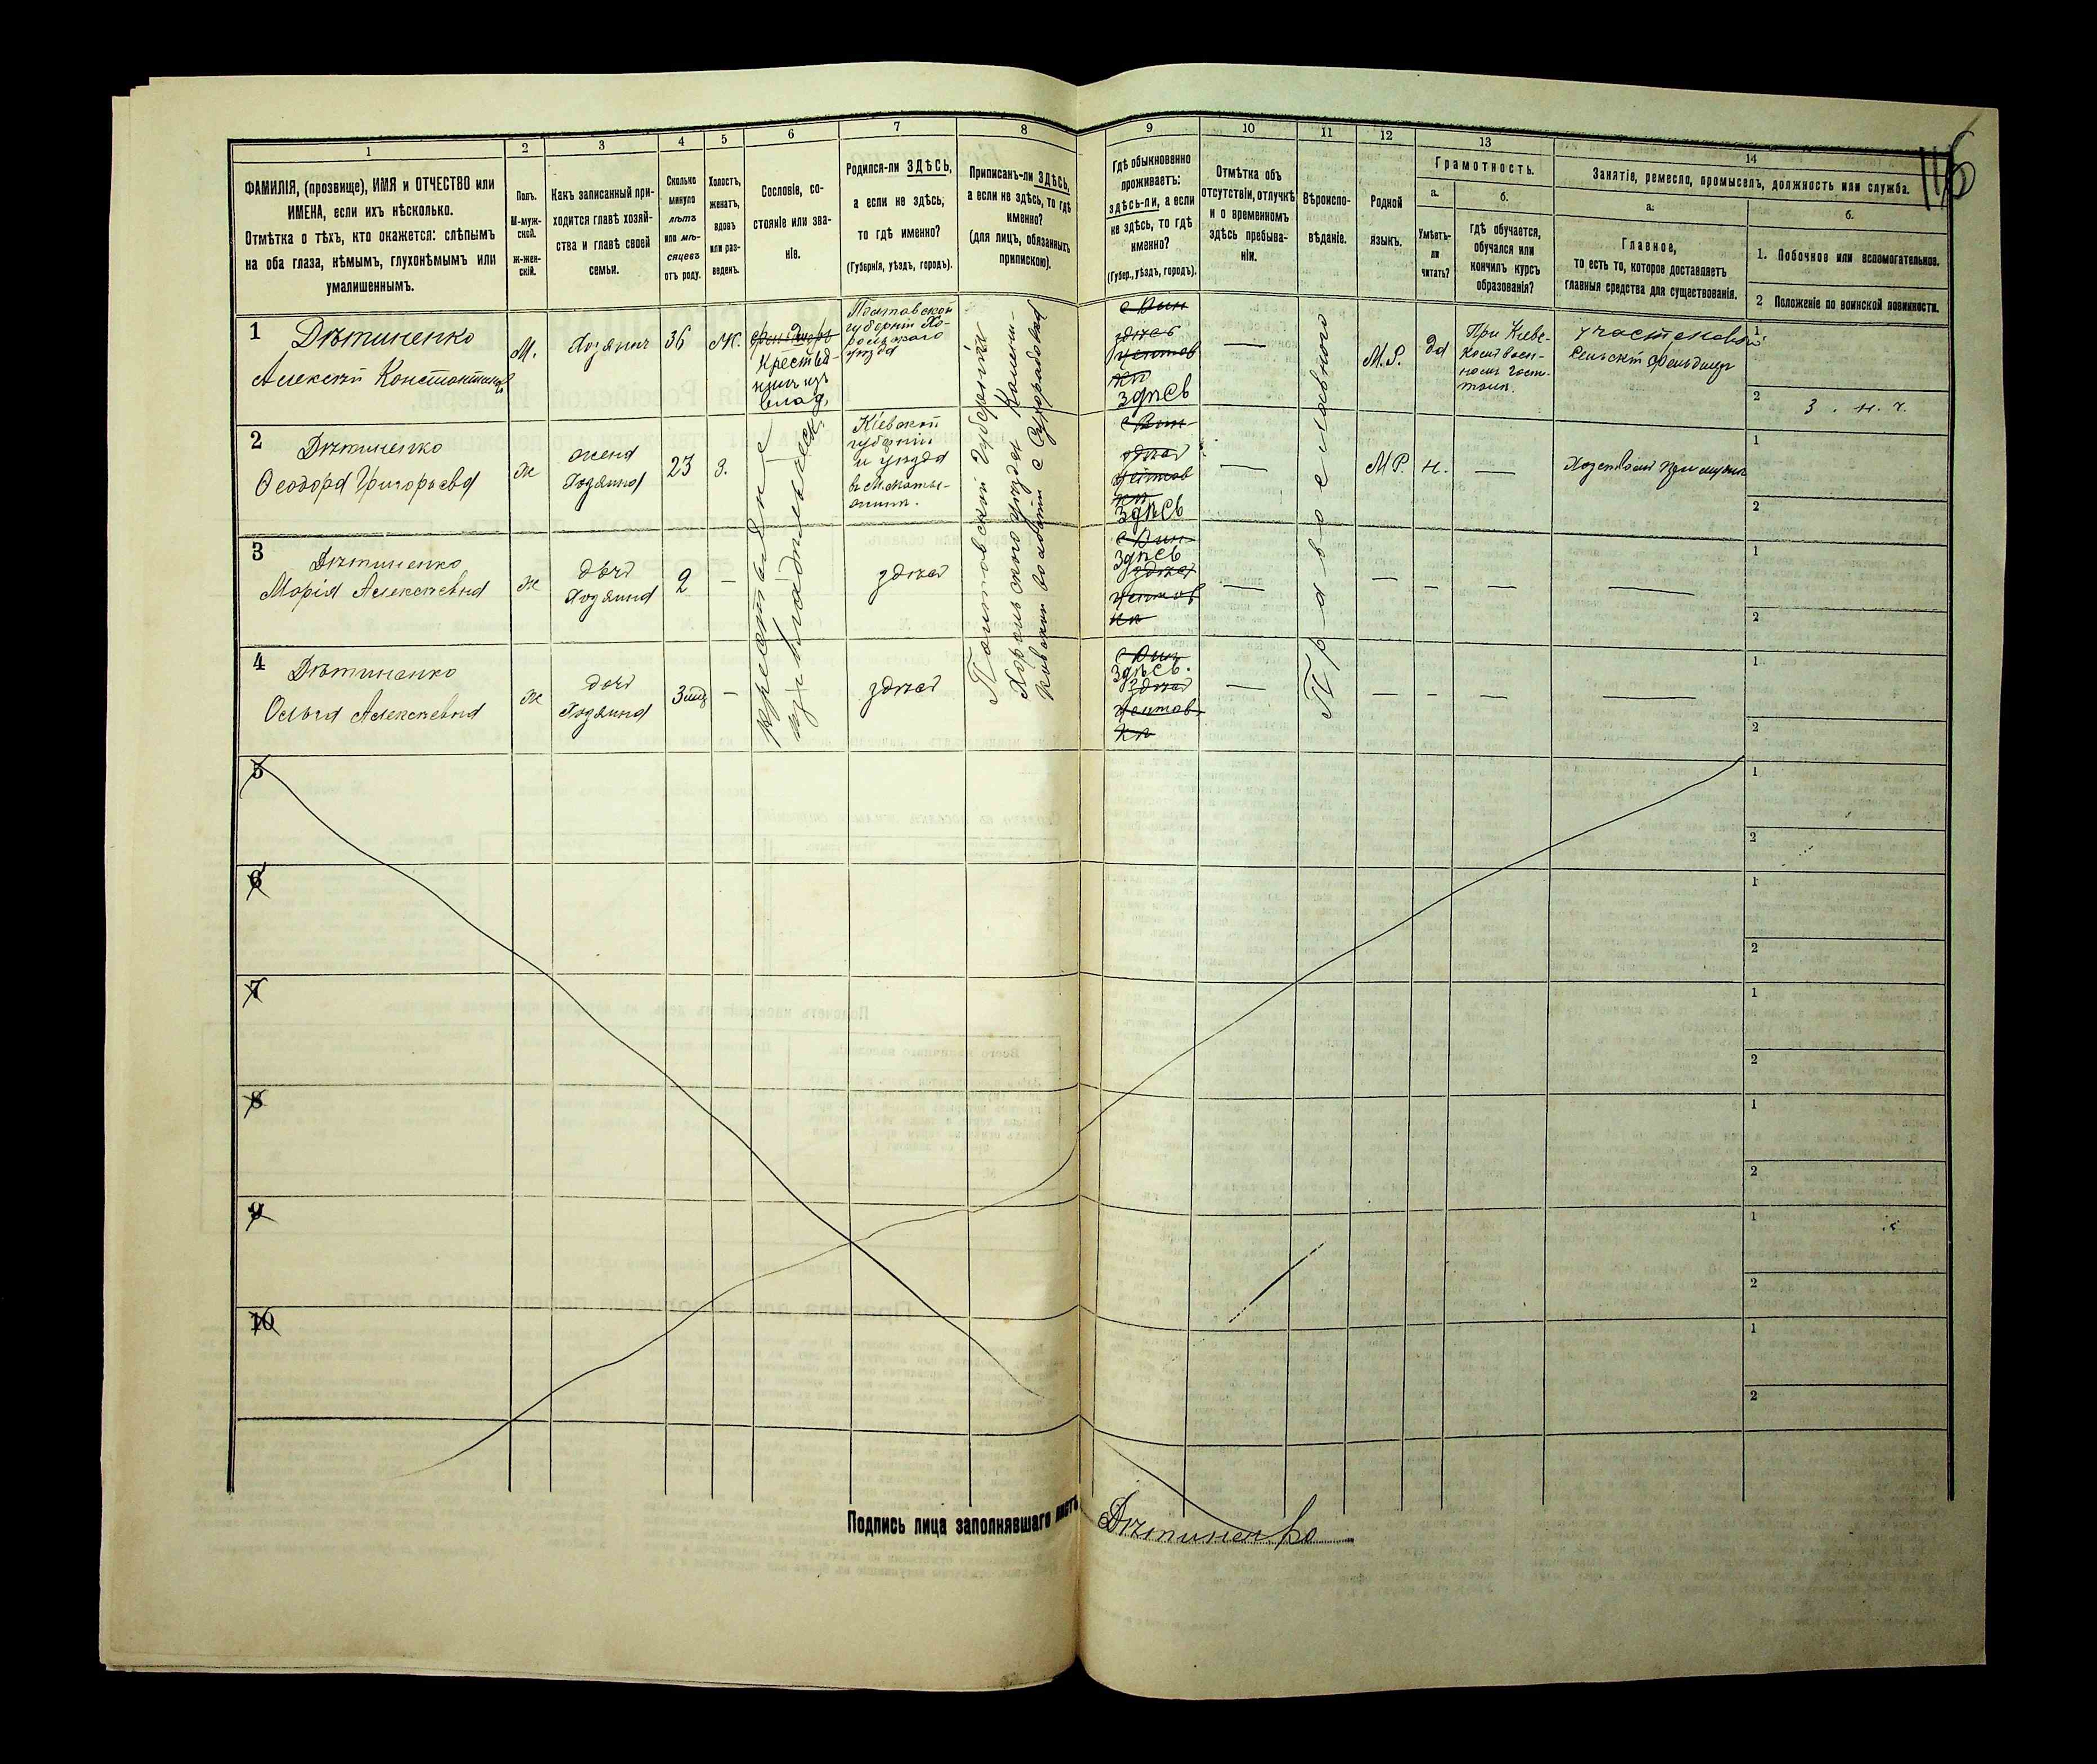 116
1
2
3
4
5
6
7
8
9
10
11
12
13
14
ФАМИЛІЯ, (прозвище), ИМЯ и ОТЧЕСТВО или
ИМЕНА, если ихъ нѣсколько.
Отмѣтка о тѣхъ, кто окажется: слѣпымъ
на оба глаза, нѣмымъ, глухонѣмымъ или
умалишеннымъ.
Полъ.
М-муж-
ской.
ж-жен-
скій.
Какъ записанный при-
ходится главѣ хозяй-
ства и главѣ своей
семьи.
Сколько
минуло
лѣтъ
или мѣ-
сяцевъ
отъ роду.
Холостъ,
женатъ,
вдовъ
или раз-
веденъ.
Сословіе, со-
стояніе или зва-
ніе.
Родился-ли ЗДѢСЬ,
а если не здѣсь,
то гдѣ именно?
(Губернія, уѣздъ, городъ).
Приписанъ-ли ЗДѢСЬ,
а если не здѣсь, то гдѣ
именно?
(для лицъ, обязанныхъ
припискою).
Гдѣ обыкновенно
проживаетъ:
здѣсь-ли, а если
не здѣсь, то гдѣ
именно?
(Губер., уѣздъ, городъ).
Отмѣтка объ
отсутствіи, отлучкѣ
и о временномъ
здѣсь пребыва-
ніи.
Вѣроиспо-
вѣданіе.
Родной
языкъ.
Грамотность.
а.
Умѣетъ-
ли
читать?
б.
гдѣ обучается,
обучался или
кончилъ курсъ
образованія?
Занятіе, ремесло, промыселъ, должность или служба.
а.
Главное,
то есть то, которое доставляетъ
главныя средства для существованія.
б.
1. Побочное или вспомогательное.
2 Положеніе по воинской повинности.
1
Дѣтиненко
Алексѣй Константиновъ
М.
Хозяинъ
36
Ж.
Крестья-
нинъ изъ
влад.
Полтавской
губерніи Хо-
рольскаго
уѣзда
здѣсь
здѣсь
—
М.Р.
да
При Кіев-
комъ воен-
номъ госп-
талѣ.
участковый
сельскій фельдшеръ
1
2
3. н. ч.
2
Дѣтиненко
Ѳеодора Григорьева
ж
жена
Хозяина
23
З.
Кіевской
губерніи
и уѣзда
здѣсь
здѣсь
—
М.Р.
н.
—
1
2
3
Дѣтиненко
Марія Алексѣевна
ж
дочь
Хозяина
2
—
здѣсь
здѣсь
здѣсь
—
—
—
—
—
1
2
4
Дѣтиненко
Ольга Алексѣевна
ж
дочь
Хозяина
3 мѣс
—
здѣсь
здѣсь.
здѣсь
—
—
—
—
—
1
2
крестьяне
изъ владѣльческ.
Полтавской Губерніи
Хорольскаго уѣзда
Православного
5
1
2
6
1
2
7
1
2
8
1
2
9
1
2
10
1
2
Подпись лица заполнявшаго листъ
Дѣтиненко